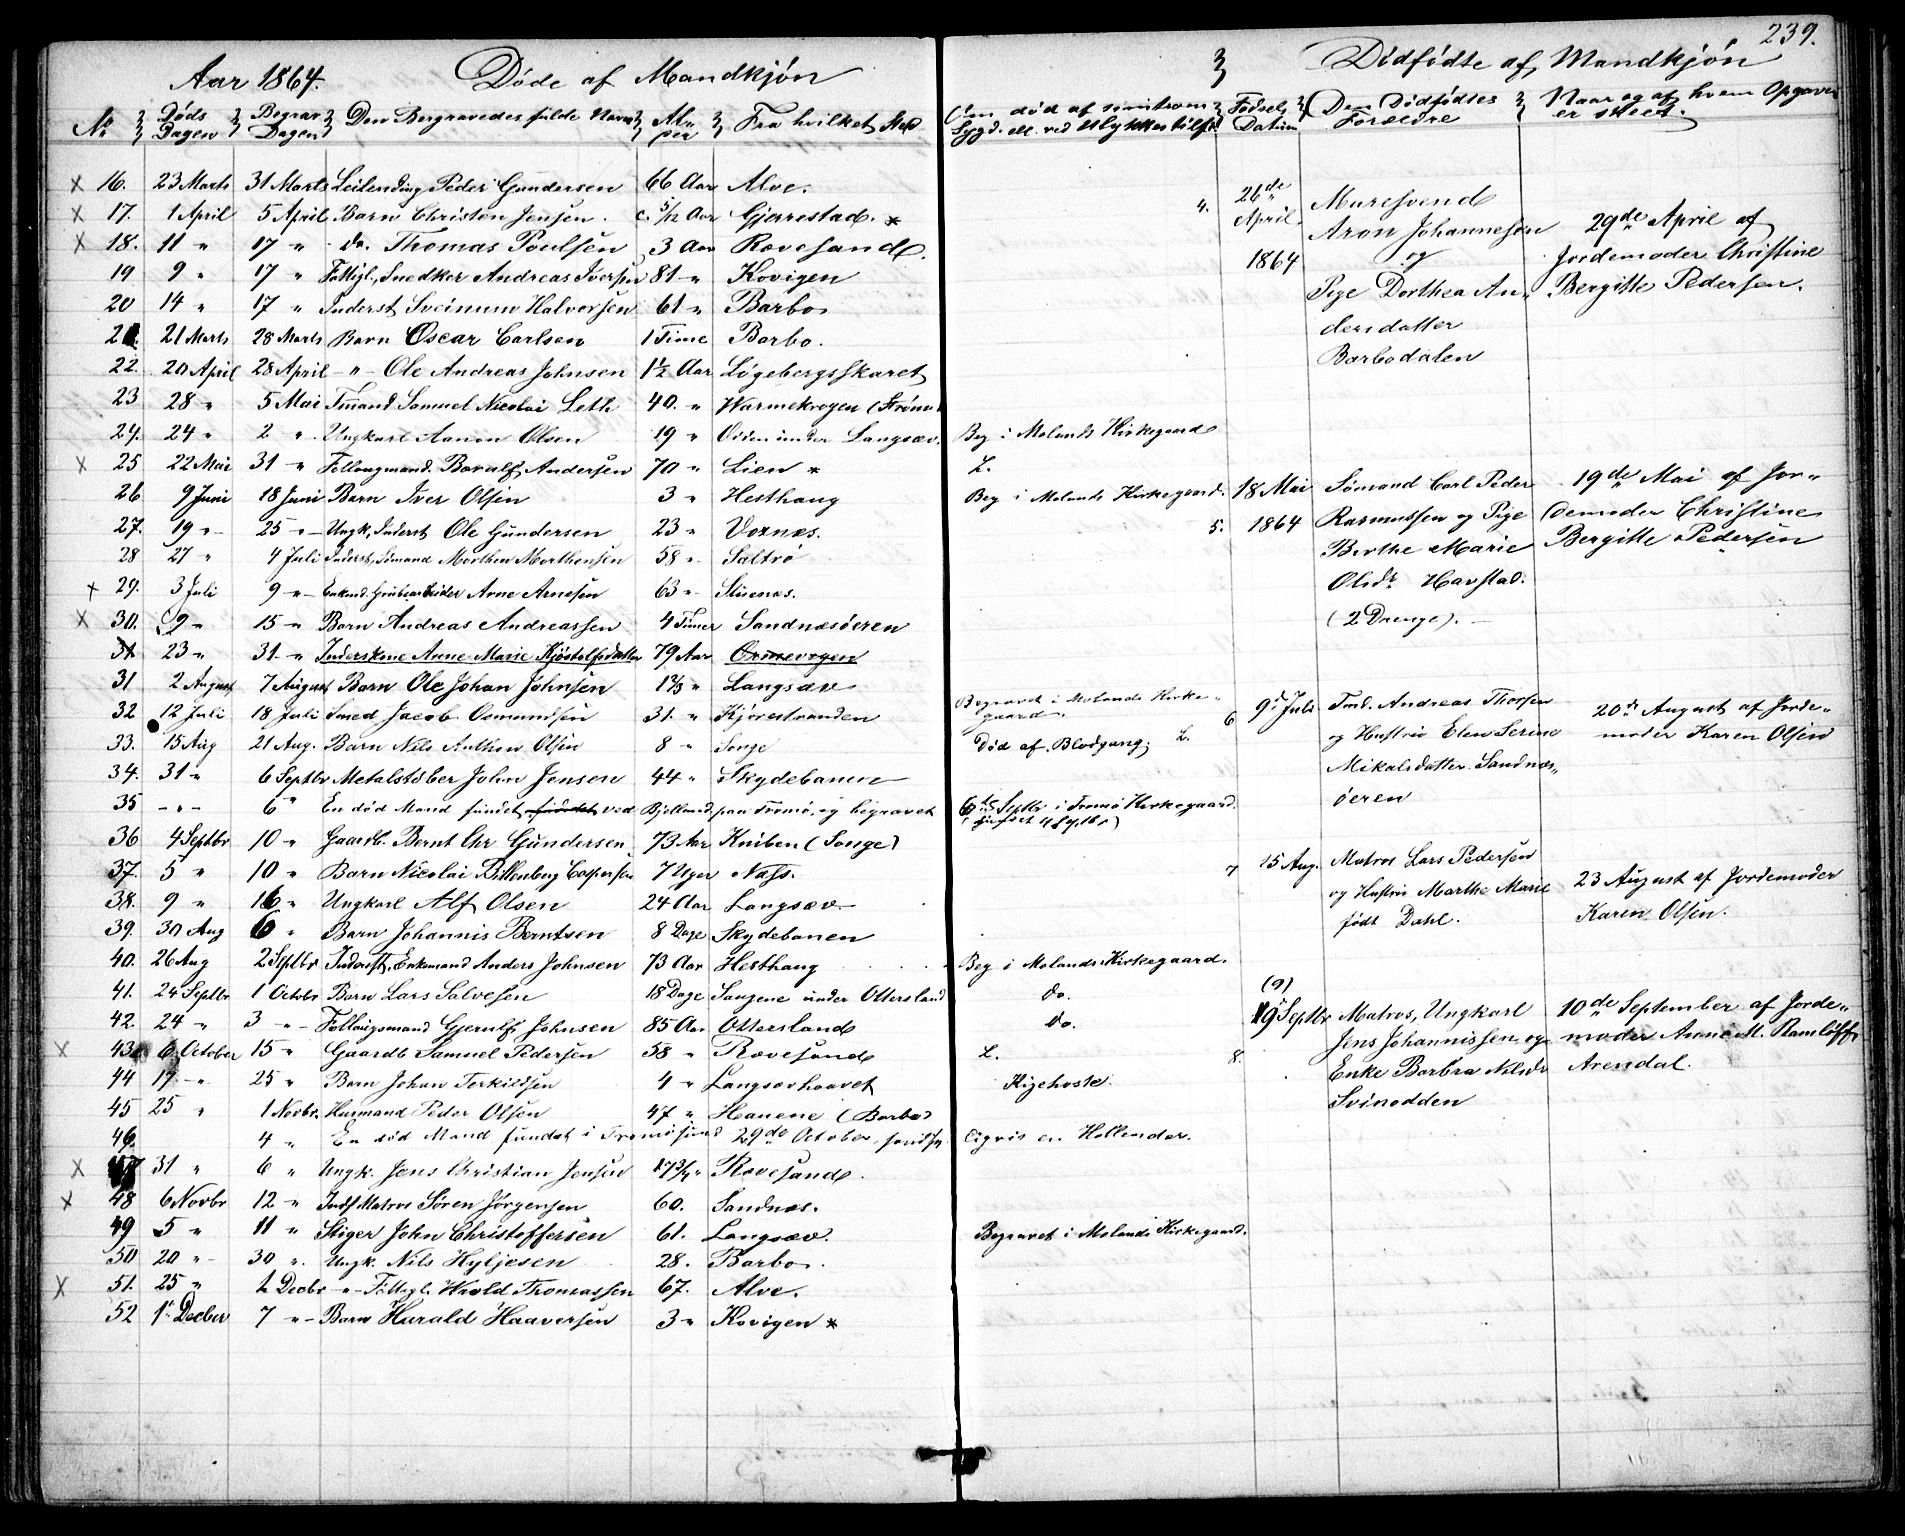 239.
Aar 1864. Døde af Mandkjøn
Dødfødte af Mandkjøn
No Døds Dagen Begrav Dagen Den Begravedes fulde Navn Al- der Fra hvilket Sted
Om død af smitsom Sygd. ell. ved Ulykkestilf. Fødsel Datum Den Dødfødtes Forældre Naar og af hvem Opgaven er skeet.
16. 23 Marts 31 Marts Leilending Peder Gundersen 66 Aar Alve.
17. 1 April 5 April Barn Christen Jensen. c. 5/12 Aar Gjerrestad. *
18. 11 " 17 " do. Thomas Poulsen 3 Aar Rævesand.
19 9 " 17 " Fattigl. Snedker Andreas Iversen 81 " Kovigen
20 14 " 17 " Inderst Sveinum Halvorsen 61 " Barbo
21. 21 Marts 28 Marts Barn Oscar Carlsen 1 Time Barbo.
22. 20 April 28 April - " - Ole Andreas Johnsen 1½ Aar Løgebergsskaret
23 28 " 5 Mai Tmand Samuel Nicolai Leth 40. " Warmekrogen (Strømm
24. 24 " 2 " Ungkarl Aanon Olsen 19 " Odden under Langsæv. Beg i Molands Kirkegaard
25 22 Mai 31 " Follaugmand. Boralf Andersen 70 " Lien * L.
26 9 Juni 18 Juni Barn Iver Olsen 3 " Hesthaug Beg i Molands Kirkegaard.
27. 19 " 25 " Ungk. Inderst Ole Gundersen 23 " Voxnæs.
28 27 " 4 Juli Inderst, Sømand Morthen Morthensen 58 " Saltrø
29. 3 Juli 9 " Enkmd. Grubearbeider Arne Arnesen 63 " Stuenæs.
30. 9 " 15 " Barn Andreas Andreassen 4 Timer Sandnæsøeren
31 23 " 31. " Inderskone Anne Marie Kjøstelfsdatter 79 Aar Ormevogen
31 2 August 7 August Barn Ole Johan Johnsen 1⅔ " Langsæv
32 12 Juli 18 Juli Smed Jacob Osmundsen 31. " Kjørestranden Begravet i Molands Kirke-
gaard.
33. 15 Aug 21 Aug. Barn Nils Anthon Olsen 8 " Songe Død af Blodgang; L.
34. 31 " 6 Septbr Metalstøber John Jensen 44 " Skydebanen
35 - " - 6 " En død Mand fundet ved Bjelland paa Tromø, og begravet 6te Septbr i Tromø Kirkegaard.
36 4 Septbr 10 " Gaardb. Bernt Chr Gundersen 73 Aar Kniben (Songe)
37. 5 " 10 " Barn Nicolai Billenberg Caspersen 7 Uger Næss.
38. 9 " 16 " Ungkarl Alf Olsen 24 Aar Langsæv
39. 30 Aug 6 " Barn Johannis Berntsen 8 Dage Skydebanen
40. 26 Aug 2 Septbr Inderst, Enkemand Anders Johnsen 73 Aar Hesthaug Beg i Molands Kirkegaard.
41. 24 Septbr 1 Octobr Barn Lars Salvesen 18 Dage Saugene under Ottersland do.
42. 24 " 3 " Follaugsmand Gjerulf Johnsen 85 Aar Ottersland do.
43. 6 October 15 " Gaardb Samuel Pedersen 58 " Rævesand L.
44 17 " 25 " Barn Johan Terkildsen 4 " Langsævhaavet Kigehoste.
45 25 " 1 Novbr. Husmand Peder Olsen 47 " Hauene (Barbo)
46. 4 " En død Mand fundet i Tromøsund 29de October, sandsynligvis en Hollender.
47 31 " 6 " Ungk. Jens Christian Jensen 17¾ " Rævesand
48 6 Novbr 12 " Indst Matros Søren Jørgensen 60. Sandnæs.
49 5 " 11 " Stiger John Christoffersen 61. Langsæv. Begravet i Molands Kirkegaard.
50 20 " 30 " Ungk. Nils Hyljesen 28. Barbo.
51. 25 " 2 Decbr - " - Fattigl. Harald Thomassen 67. Alve.
52 1ste Decber 7 " Barn Harald Haaversen 3 " Kovigen *
4. 26de April 1864
Muresvend
Aron Johannesen
og
Pige Dorthea An-
dersdatter
Barbodalen
29de April af
Jordemoder Christine
Bergitte Pedersen.
5. 18 Mai 1864
Sømand Carl Peder
Rasmussen og Pige
Berthe Marie
Olsdr Havstad.
(2 Drenge).
19de Mai af Jor-
demoder Christine
Bergitte Pedersen
6 9de Juli
Tmd. Andreas Thorsen
og Hustru Elen Serine
Mikalsdatter Sandnæs-
øeren
20de August af Jorde-
moder Karen Olsen
7 15 Aug.
Matros Lars Pedersen
og Hustru Marthe Marie
født Dahl.
23 August af Jordemoder
Karen Olsen.
8. (9) 9 Septbr
Matros, Ungkarl
Jens Johannissen og
Enke Barbra Nilsdr
Svinodden
10de September af Jorde-
moder Anne M. Ramløff
Arendal.